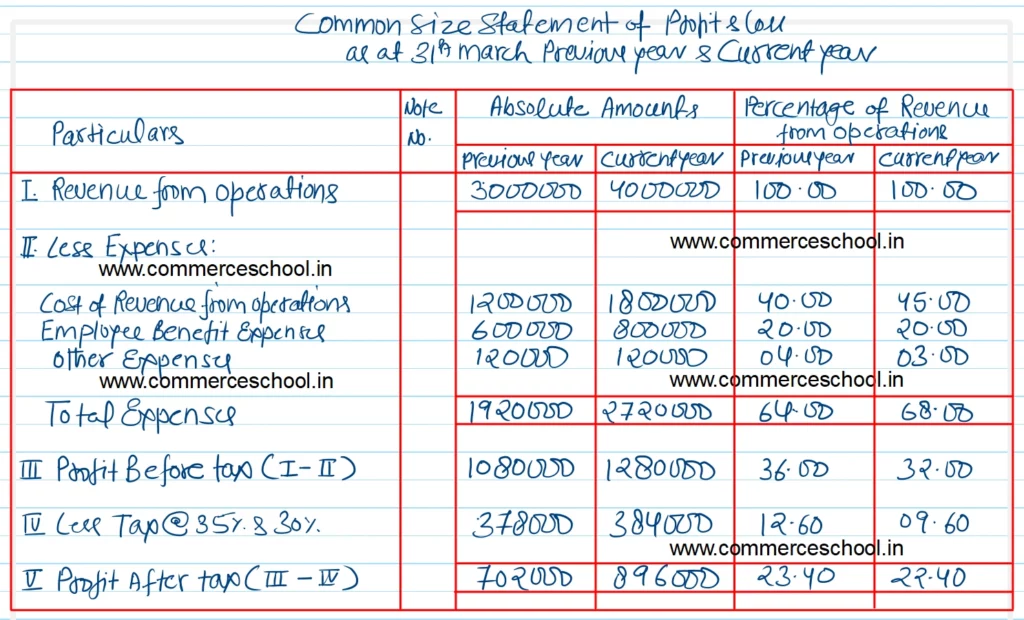 Common Size Statement of Profit & Loss
as at 31st March Previous year & Current year
Particulars
Note No.
Absolute Amounts
Percentage of Revenue from operations
Previous year Current year Previous year Current year
I. Revenue from operations 3000000 4000000 100.00 100.00
II. Less Expenses:
www.commerceschool.in
www.commerceschool.in
Cost of Revenue from operations 1200000 1800000 40.00 45.00
Employee Benefit Expenses 600000 800000 20.00 20.00
Other Expenses 120000 120000 04.00 03.00
www.commerceschool.in www.commerceschool.in
Total Expenses 1920000 2720000 64.00 68.00
III Profit Before tax (I-II) 1080000 1280000 36.00 32.00
IV Less Tax @ 35% & 30% 378000 384000 12.60 09.60
www.commerceschool.in
V Profit After tax (III - IV) 702000 896000 23.40 22.40